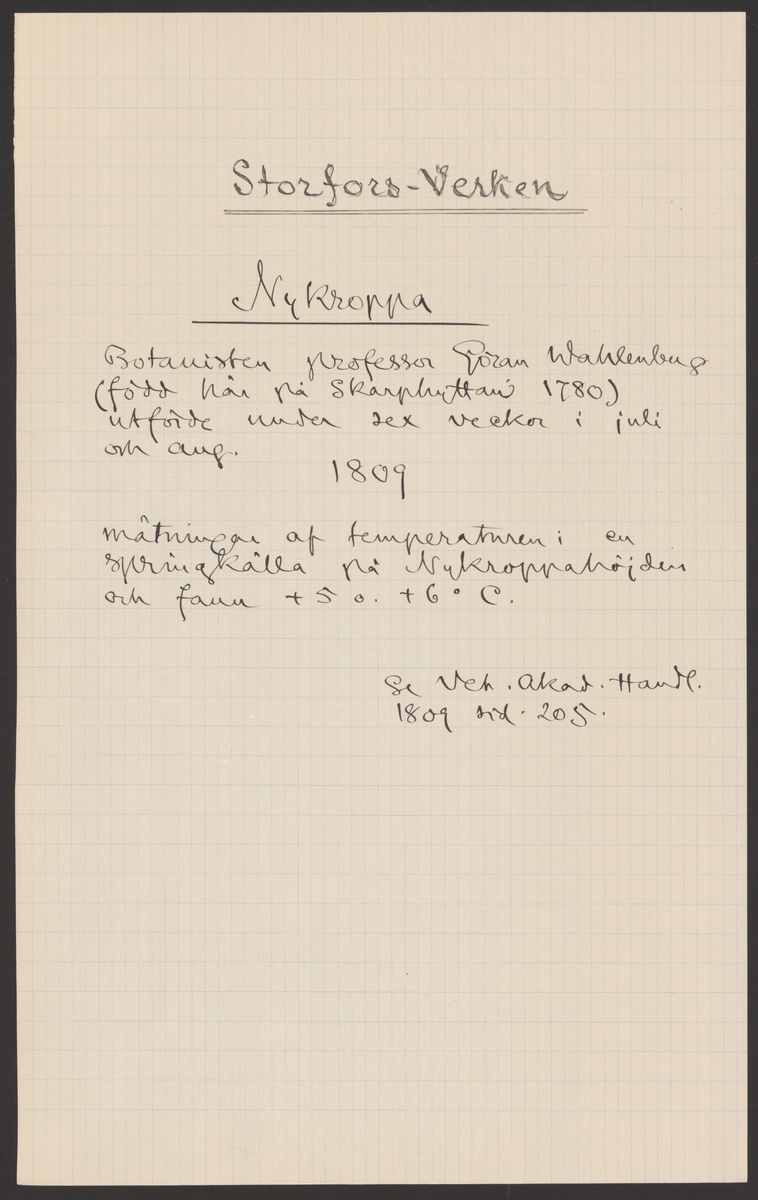 Storfors-Verken
Nykroppa
Botanisten professor Göran Wahlenberg
(född här på Skarphyttan 1780)
utförde under sex veckor i juli
och aug.
1809
mätningar af temperaturen i en
springkälla på Nykroppahöjden
och fann +5 o. +6° C.
Se Vet. Akad. Handl.
1809 sid. 205.